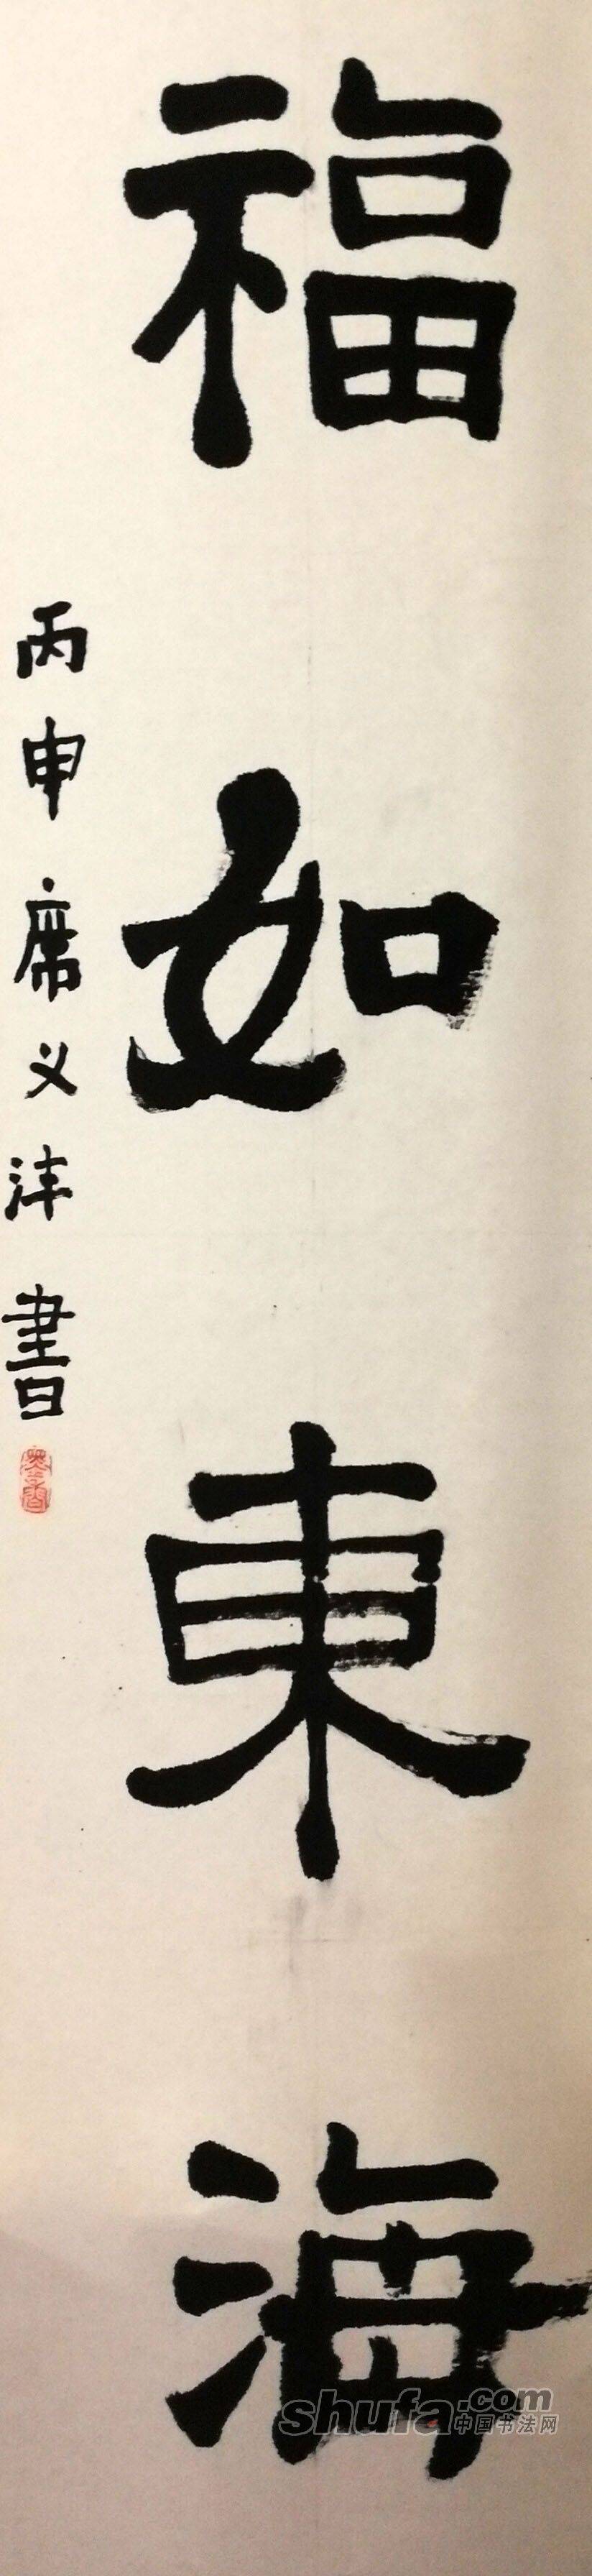 福如東海
丙申席义沣書
墨香
shufa.com
中国书法网